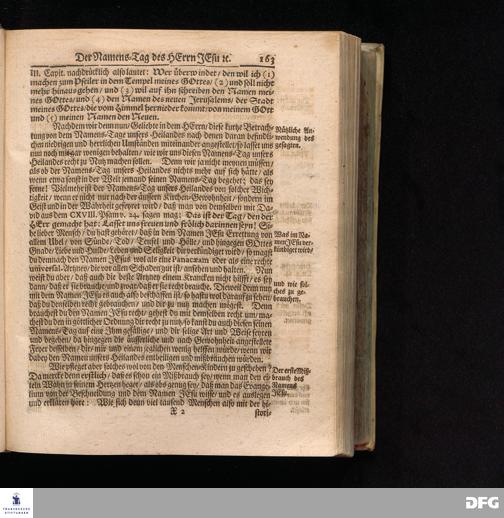 Der Namens-Tag des HErrn JEsu ꝛc. 163
III. Capit. nachdrücklich also lautet: Wer überwindet / den wil ich (1)
machen zum Pfeiler in dem Tempel meines GOttes / (2) und soll nicht
mehr hinaus gehen / und (3) wil auf ihn schreiben den Namen mei-
nes GOttes / und (4) den Namen des neuen Jerusalems / der Stadt
meines GOttes / die vom Himmel hernieder kommt von meinem GOtt
und (5) meinen Namen den Neuen.
Nachdem wir denn nun / Geliebte in dem HErrn / diese kurtze Betrach-
tung von dem Namens-Tag unsers Heilandes nach denen daran befindli-
chen niedrigen und herrlichen Umständen miteinander angestellet / so lasset uns
nun noch mit wenigen behalten / wie wir uns diesen Namens-Tag unsers
Heilandes recht zu Nutz machen sollen. Denn wir ja nicht meynen müssen /
als ob der Namens-Tag unsers Heilandes nichts mehr auf sich hätte / als
wenn etwa sonst in der Welt jemand seinen Namens-Tag begehet: das sey
ferne! Vielmehr ist der Namens-Tag unsers Heilandes von solcher Wich-
tigkeit / wenn er nicht nur nach der äussern Kirchen-Gewohnheit / sondern im
Geist und in der Wahrheit gefeyret wird / daß man von demselben mit Da-
vid aus dem CXVIII. Psalm v. 24. sagen mag: Das ist der Tag / den der
HErr gemacht hat: Lasset uns freuen und frölich darinnen seyn! Si-
he lieber Mensch / du hast gehöret / daß in dem Namen JEsu Errettung von
allem Übel / von Sünde / Tod / Teufel und Hölle / und hingegen GOttes
Gnade / Liebe und Hulde / Leben und Seligkeit dir verkündiget wird / so magst
du demnach den Namen JEsus wol als eine Panaceam oder als eine rechte
universal-Artzney / die vor allen Schaden gut ist / ansehen und halten. Nun
weist du aber / daß auch die beste Artzney einem Krancken nicht hilfft / es sey
dann / daß er sie brauche / und zwar / daß er sie recht brauche. Dieweil denn nun
mit dem Namen JEsu es auch also beschaffen ist / so hastu wol darauf zu sehen /
daß du denselben recht gebrauchen / und dir zu nutz machen mögest. Denn
brauchest du den Namen JEsu recht / gehest du mit demselben recht um / ma-
chest du den in göttlicher Ordnung dir recht zu nutz / so kanst du auch diesen seinen
Namens-Tag auf eine Ihm gefällige / und dir selige Art und Weise feyren
und begehen / da hingegen die äusserliche und nach Gewohnheit angestellete
Feyer desselben / dir / mir und einem jeglichen wenig helffen würde / wenn wir
dabey den Namen unsers Heilandes entheiligen und mißbrauchen würden.
Wie pfleget aber solches wol von den Menschenkindern zu geschehen?
Da mercke denn erstlich / daß es schon ein Mißbrauch sey / wenn man den ei-
teln Wahn in seinem Hertzen heget / als obs genug sey / daß man das Evange-
lium von der Beschneidung und dem Namen JEsu wisse / und es auslegen
und erklären höre: Wie sich denn viel tausend Menschen also mit der hi-
X 2
stori-
Nützliche An-
wendung des
gesagten.
Was im Na-
men JEsu ver-
kündiget wird /
und wie sol-
ches zu ge-
brauchen.
Der erste Miß-
brauch des
Namens
JEsu.
FRANCKESCHE
STIFTUNGEN
DFG